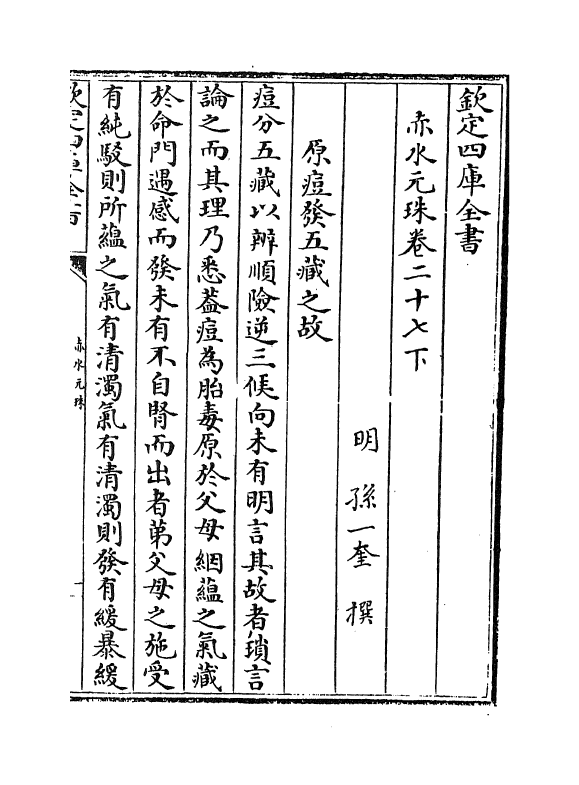 欽定四庫全書
赤水元珠卷二十七下
明 孫一奎 撰
原痘發五藏之故
痘分五藏以辨順險逆三候向未有明言其故者瑣言
論之而其理乃悉葢痘為胎毒原於父母絪蘊之氣藏
於命門遇感而發未有不自腎而出者第父母之施受
有純駁則所蘊之氣有清濁氣有清濁則發有緩暴緩
欽定四庫全書
赤水元珠
一